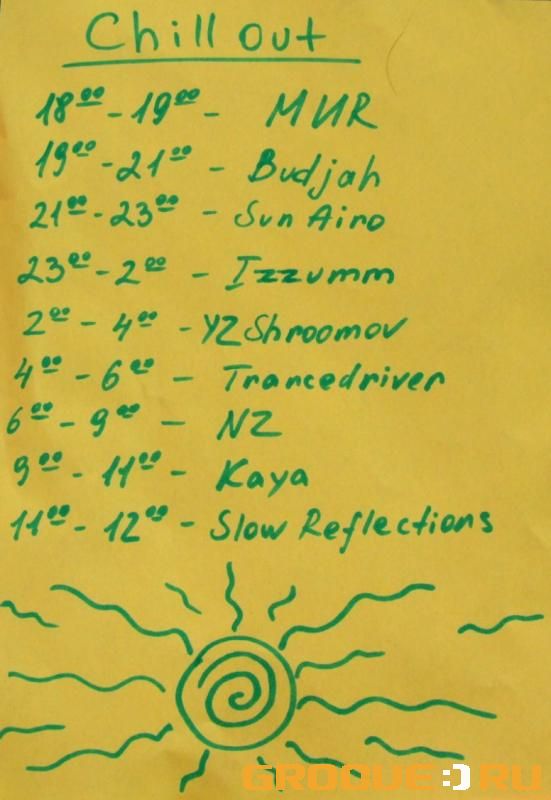 Chill out
18⁰⁰ - 19⁰⁰ - МИR
19⁰⁰ - 21⁰⁰ - Budjah
21⁰⁰ - 23⁰⁰ - Sun Airo
23⁰⁰ - 2⁰⁰ - Izzumm
2⁰⁰ - 4⁰⁰ - YZ Shroomov
4⁰⁰ - 6⁰⁰ - Trancedriver
6⁰⁰ - 9⁰⁰ - NZ
9⁰⁰ - 11⁰⁰ - Kaya
11⁰⁰ - 12⁰⁰ - Slow Reflections
GROOVE:)RU